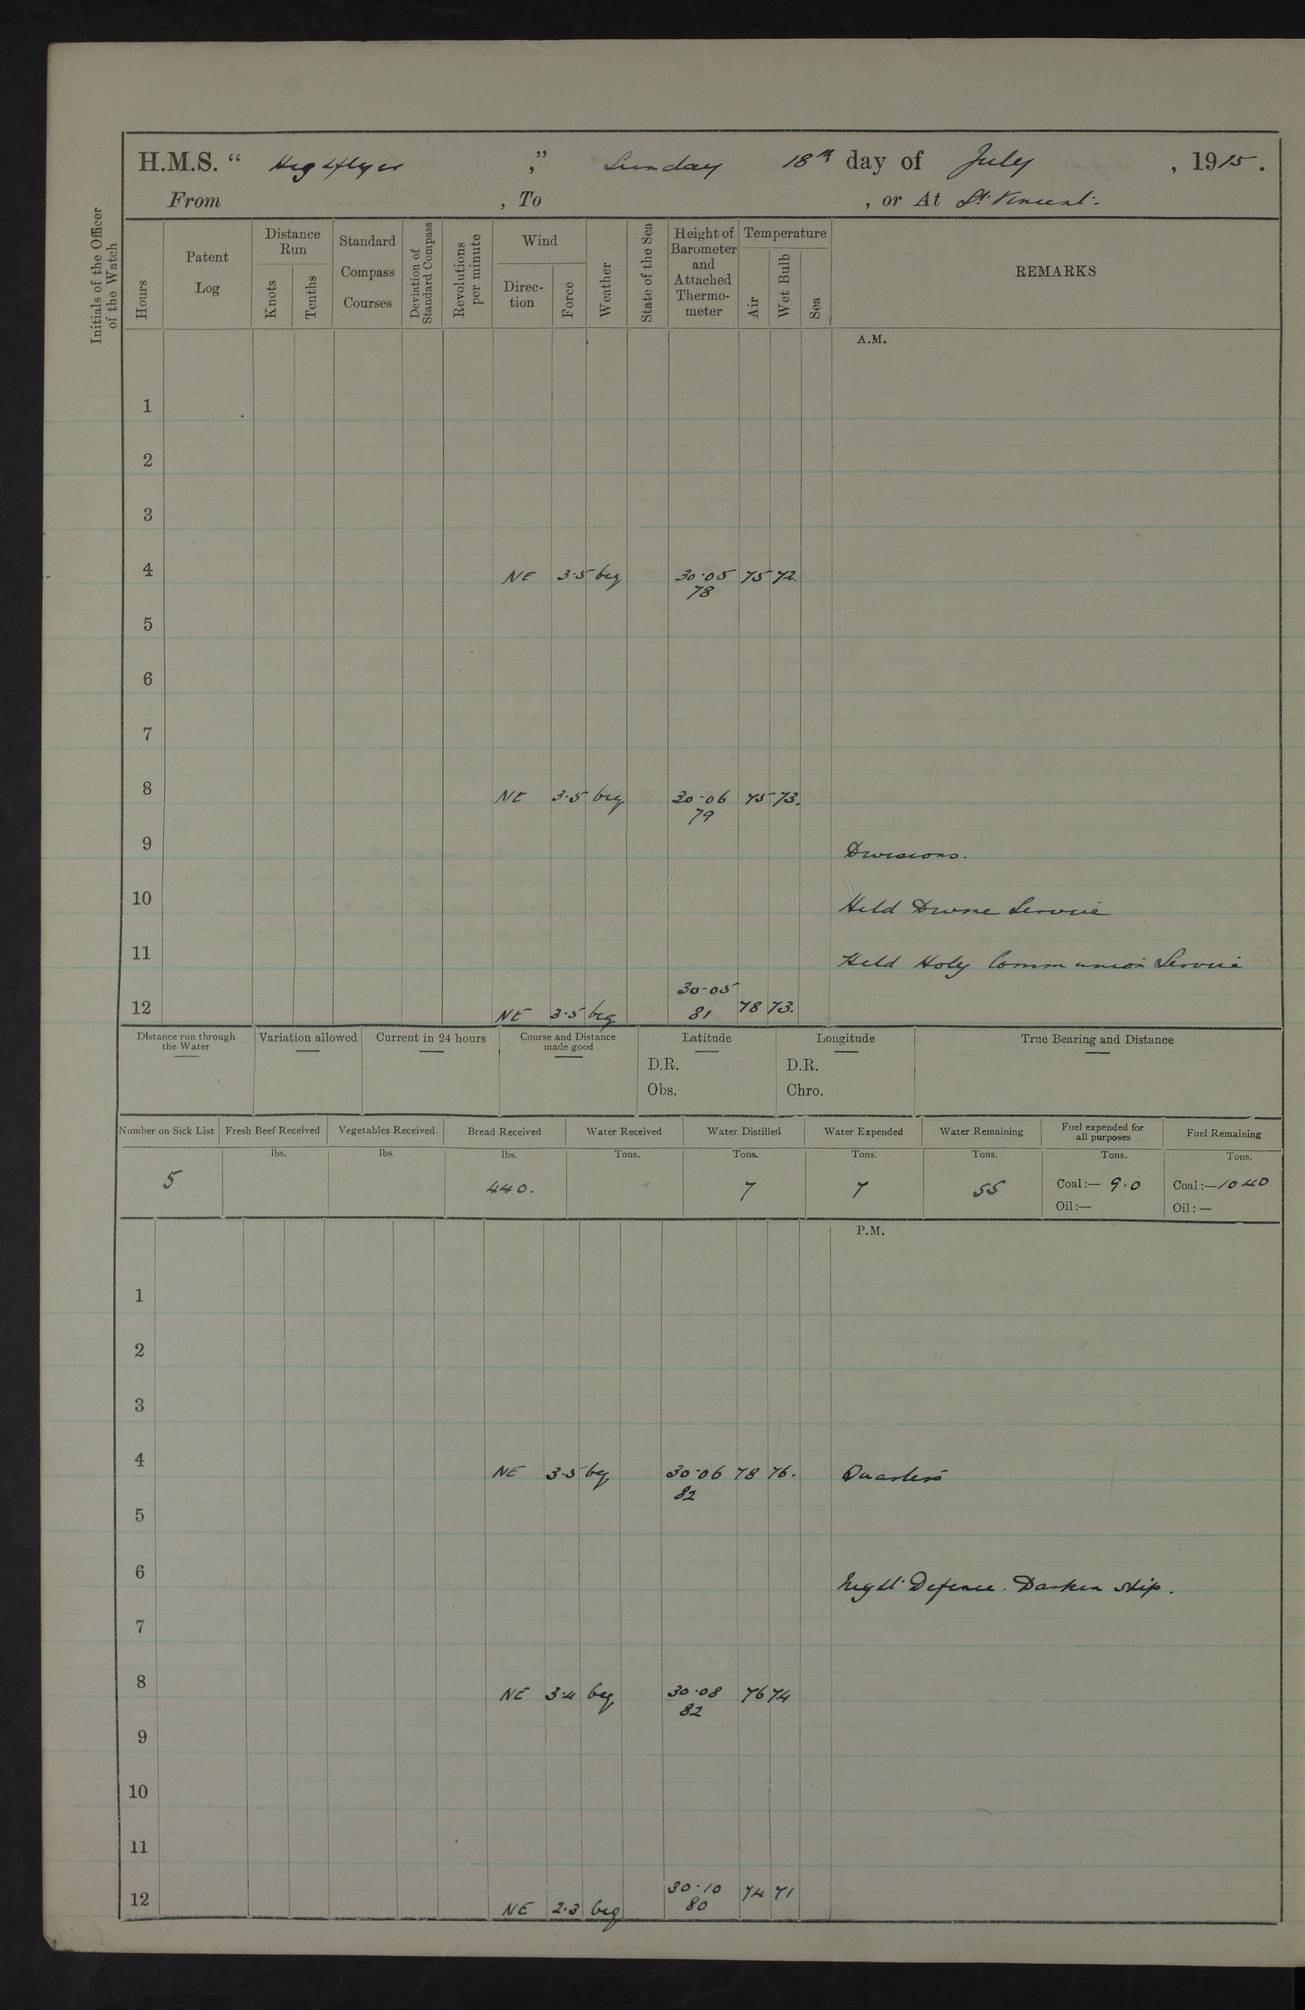 H.M.S. “ Highflyer ,” Sunday 18th day of July , 1915.
From , To , or At St Vincent.
Initials of the Officer of the Watch
Hours
Patent Log
Distance Run
Knots
Tenths
Standard Compass Courses
Deviation of Standard Compass
Revolutions per minute
Wind
Direction
Force
Weather
State of the Sea
Height of Barometer and Attached Thermometer
Temperature
Air
Wet Bulb
Sea
REMARKS
A.M.
1
2
3
4 NE 3·5 bcq 30·05 75 72
78
5
6
7
8 NE 3·5 bcq 30·06 75 73.
79
9 Divisions.
10 Held Divine Service
11 Held Holy Communion Service
30·05
12 NE 3·5 bcq 81 78 73.
Distance run through the Water
Variation allowed
Current in 24 hours
Course and Distance made good
Latitude
D.R.
Obs.
Longitude
D.R.
Chro.
True Bearing and Distance
Number on Sick List Fresh Beef Received Vegetables Received Bread Received Water Received Water Distilled Water Expended Water Remaining Fuel expended for all purposes Fuel Remaining
lbs. lbs. lbs. Tons. Tons. Tons. Tons. Tons. Tons.
5 440. 7 7 55 Coal:— 9·0 Coal:— 1040
Oil:— Oil:—
P.M.
1
2
3
4 NE 3·5 bcq 30·06 78 76. Quarters
82
5
6 Night Defence. Darken ship.
7
8 NE 3·4 bcq 30·08 76 74
82
9
10
11
30·10 74 71
12 NE 2·3 bcq 80